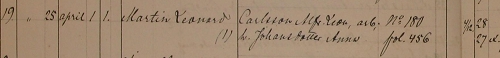 19 " 25 april 1 1. Martin Leonard Carlsson Alfr. Leon, arb, No 180 4/2 28
(1) h. Johansdotter Anna fol. 456 27